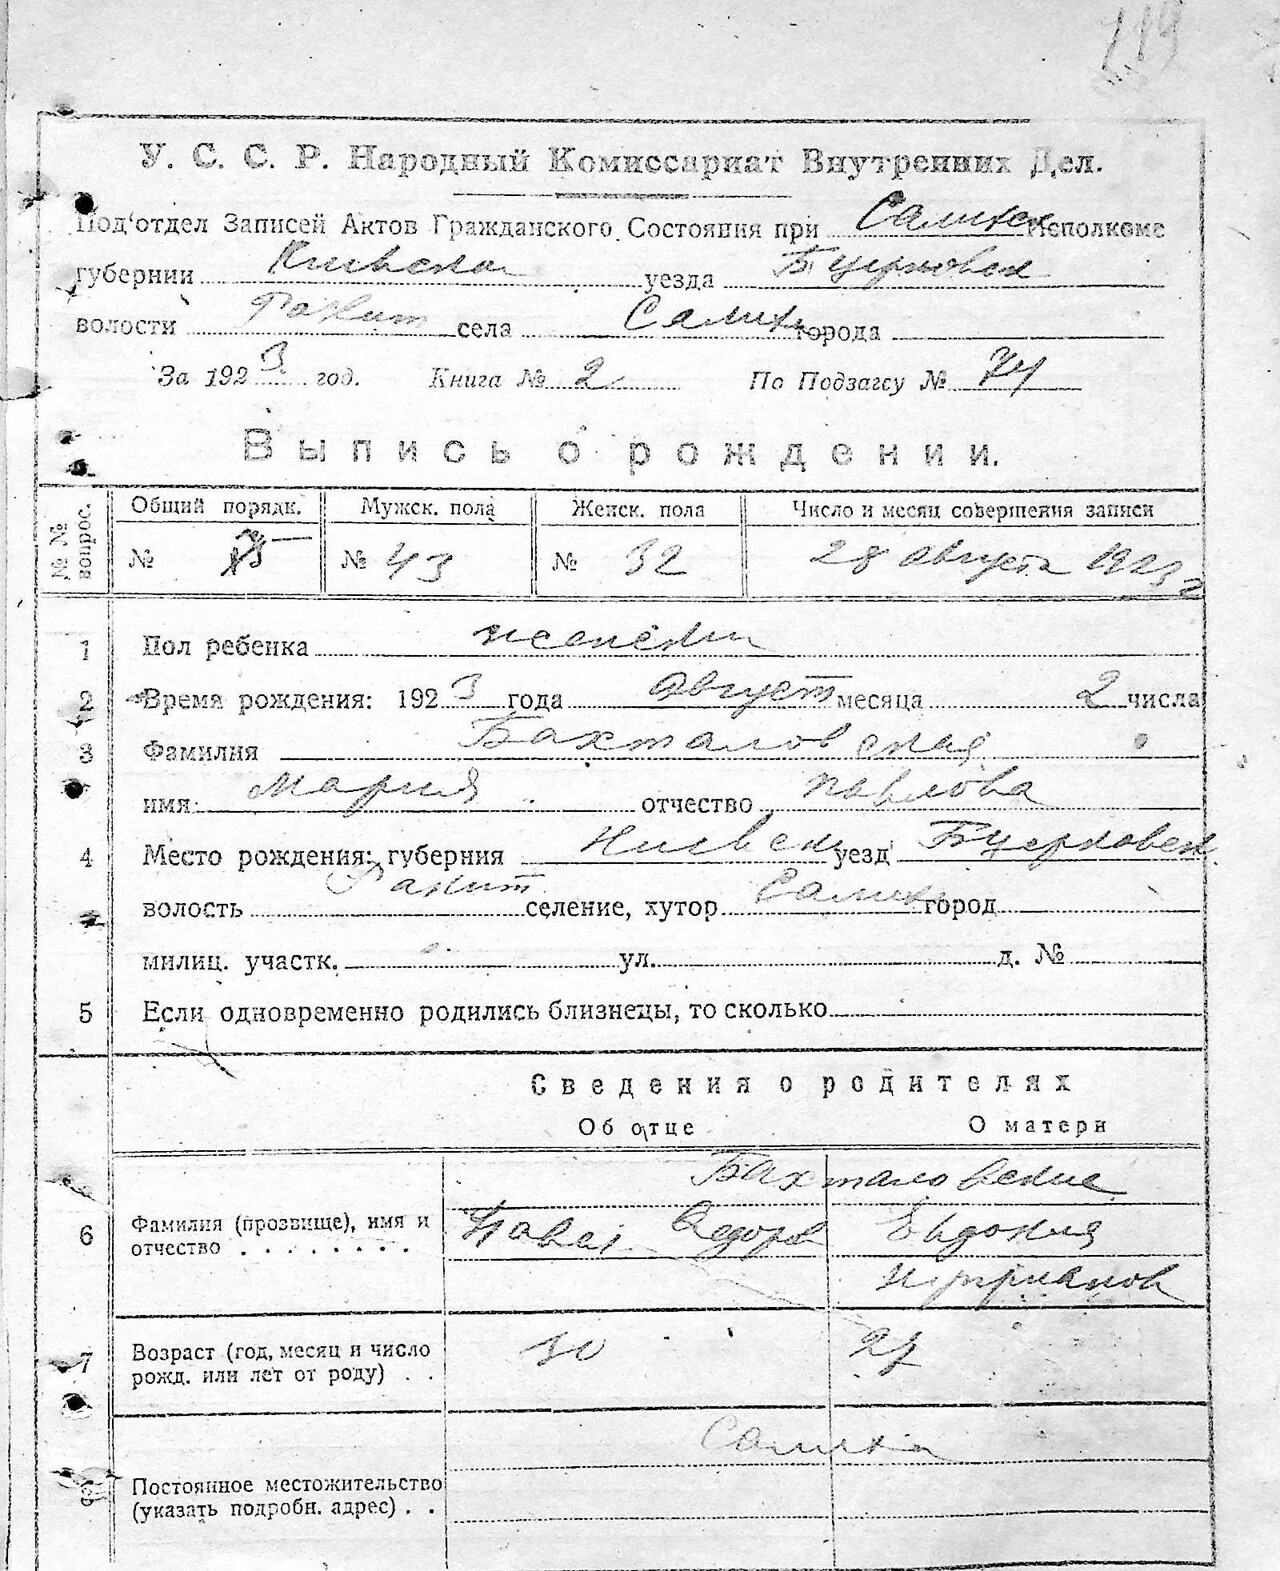 У. С. С. Р. Народный Комиссариат Внутренних Дел.
Под'отдел Записей Актов Гражданского Состояния при Салихск Исполкоме
губернии Киевской уезда Бцерковск
волости Ракит села Салиха города
За 1923 год. Книга № 2 По Подзагсу № 74
Выпись о рождении.
№ № вопрос. Общий порядк. Мужск. пола Женск. пола Число и месяц совершения записи
№ 75 № 43 № 32 28 августа 1923 г
1 Пол ребенка женский
2 Время рождения: 1923 года Август месяца 2 числа
3 Фамилия Бахталовская
имя Мария отчество Павлова
4 Место рождения: губерния Киевск уезд Бцерковск
волость Ракит селение, хутор Салиха город
милиц. участк. ул. д. №
5 Если одновременно родились близнецы, то сколько
Сведения о родителях
Об отце О матери
Бахталовские
6 Фамилия (прозвище), имя и отчество Павел Федоров Евдокия
7 Возраст (год, месяц и число рожд. или лет от роду) 30 27
Салиха
8 Постоянное местожительство
(указать подробн. адрес)